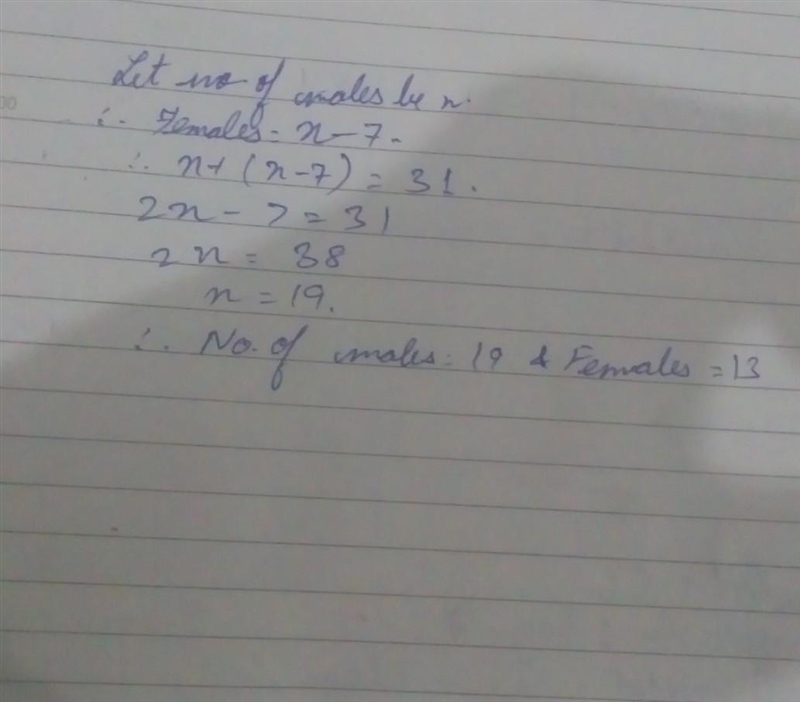 Let no of males be x.
∴ Females = x - 7.
∴ x + (x - 7) = 31.
2x - 7 = 31
2x = 38
x = 19.
∴ No. of males = 19 & Females = 13